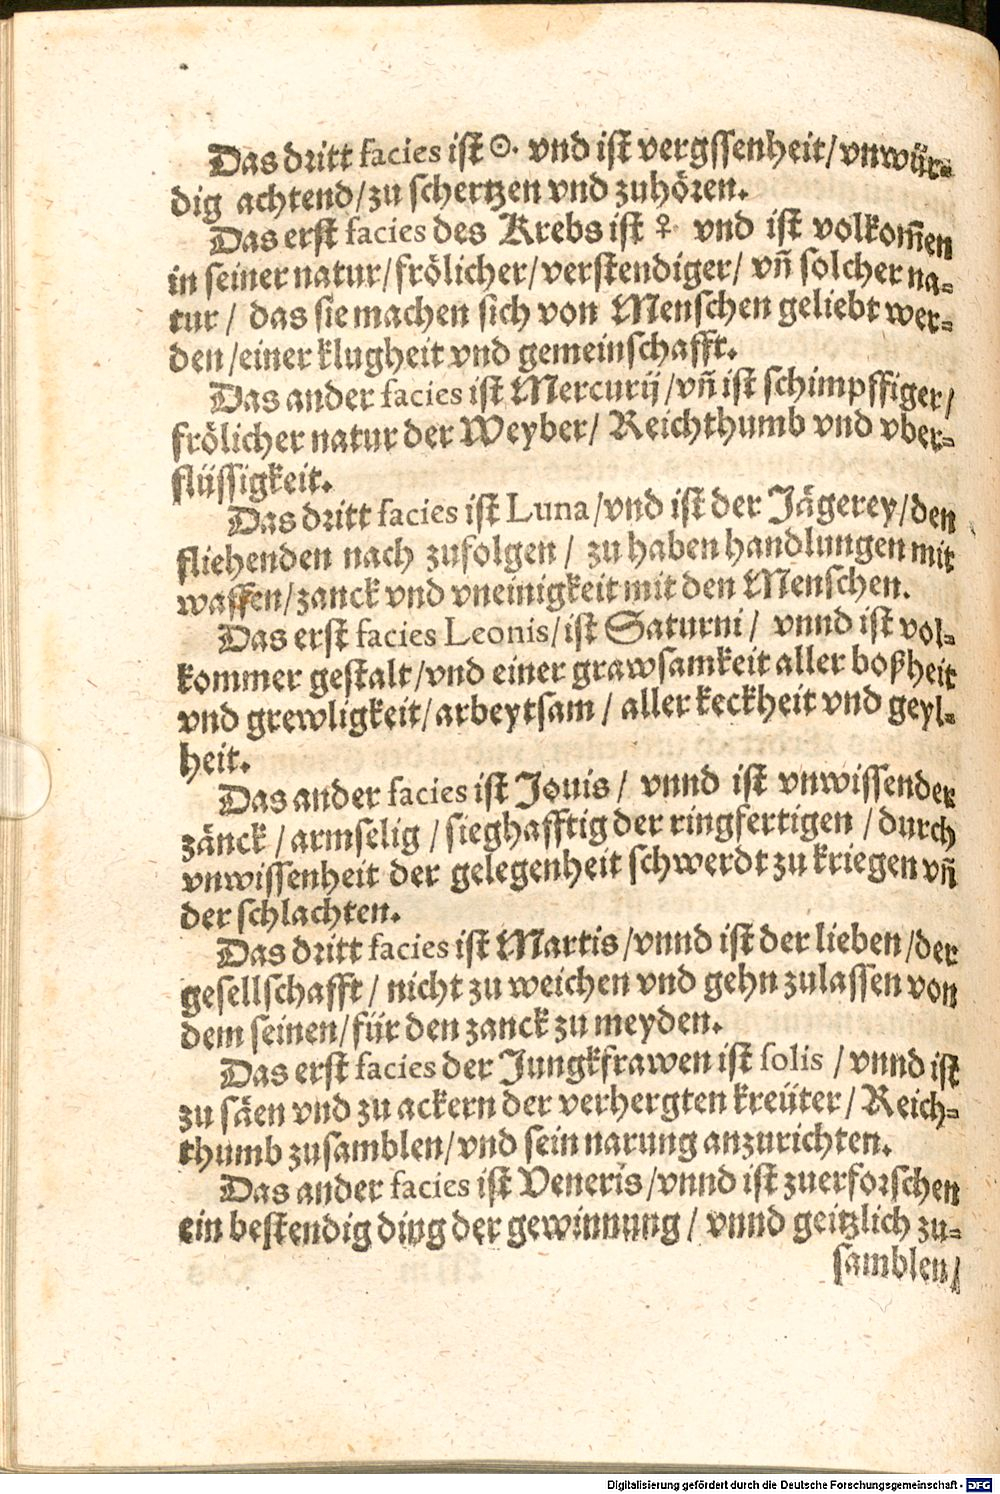 Das dritt facies ist ☉. vnd ist vergssenheit/vnwür-
dig achtend/zu schertzen vnd zuhören.
Das erst facies des Krebs ist ♀ vnd ist volkom̃en
in seiner natur/frölicher/verstendiger/ vñ solcher na-
tur / das sie machen sich von Menschen geliebt wer-
den /einer klugheit vnd gemeinschafft.
Das ander facies ist Mercurij /vñ ist schimpffiger/
frölicher natur der Weyber/ Reichthumb vnd vber-
flüssigkeit.
Das dritt facies ist Luna /vnd ist der Jägerey/den
fliehenden nach zufolgen / zu haben handlungen mit
waffen/zanck vnd vneinigkeit mit den Menschen.
Das erst facies Leonis/ist Saturni / vnnd ist vol-
kommer gestalt/vnd einer grawsamkeit aller boßheit
vnd grewligkeit/arbeytsam / aller keckheit vnd geyl-
heit.
Das ander facies ist Jouis / vnnd ist vnwissender
zänck /armselig /sieghafftig der ringfertigen /durch
vnwissenheit der gelegenheit schwerdt zu kriegen vñ
der schlachten.
Das dritt facies ist Martis/vnnd ist der lieben /der
gesellschafft / nicht zu weichen vnd gehn zulassen von
dem seinen/für den zanck zu meyden.
Das erst facies der Jungkfrawen ist solis / vnnd ist
zu säen vnd zu ackern der verhergten kreüter/ Reich-
thumb zusamblen/vnd sein narung anzurichten.
Das ander facies ist Veneris/vnnd ist zuerforschen
ein bestendig ding der gewinnung / vnnd geitzlich zu-
samblen/
Digitalisierung gefördert durch die Deutsche Forschungsgemeinschaft - DFG